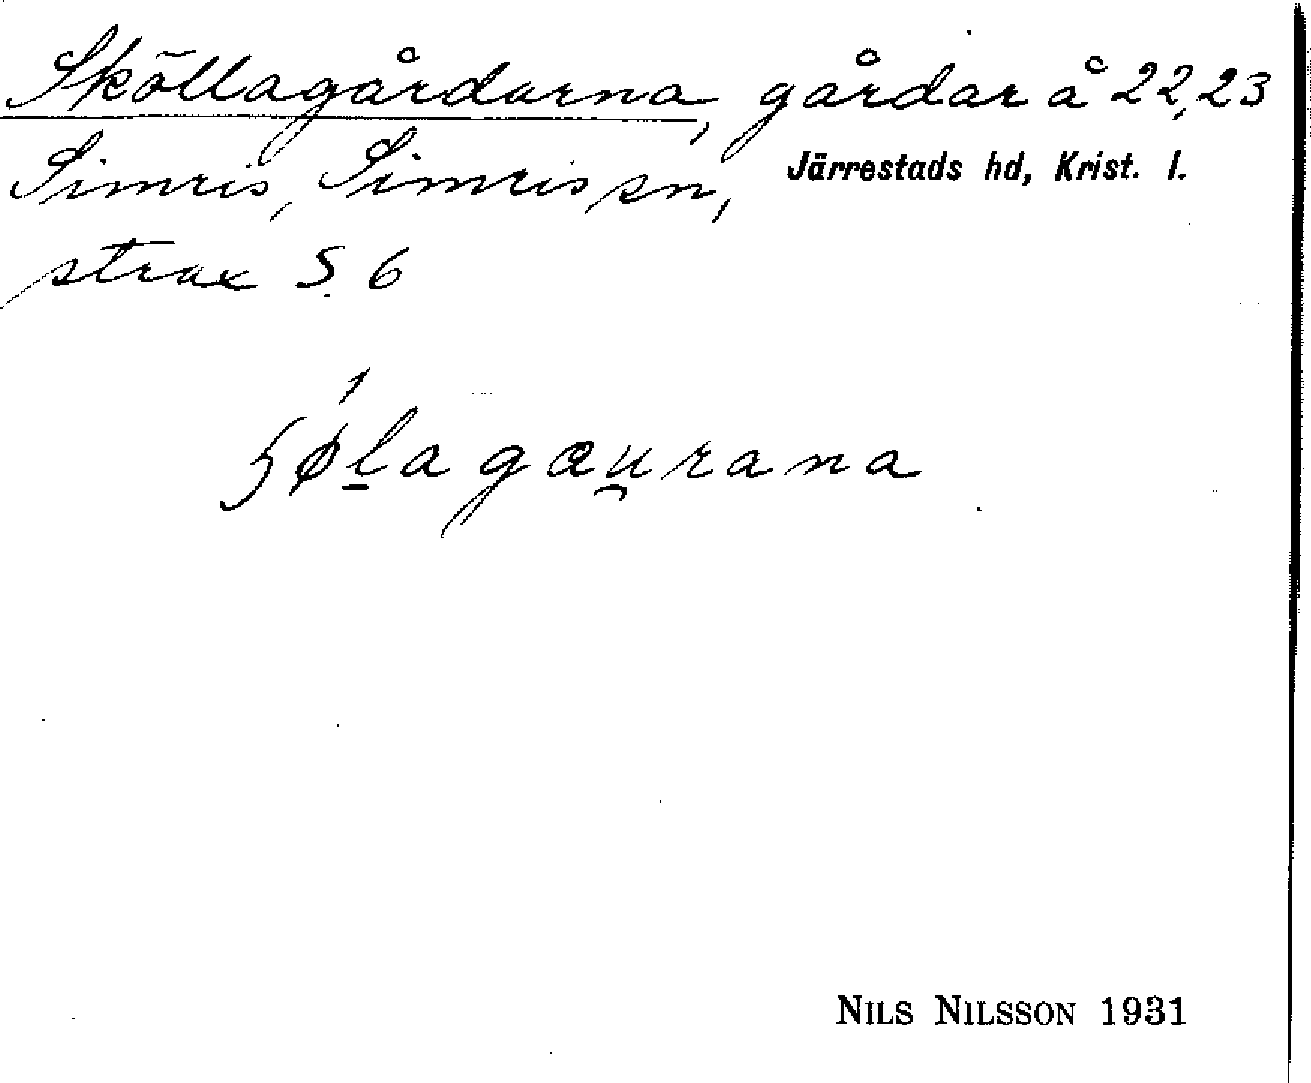 Sköllagårdarna, gårdar å 22, 23
Simris, Simris sn, Järrestads hd, Krist. l.
strax S. 6
ʃǿla gæu̯rana
NILS NILSSON 1931